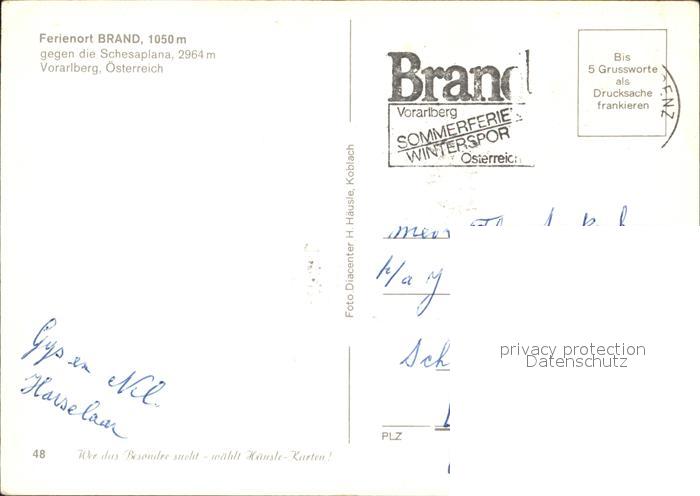 Ferienort BRAND, 1050 m
gegen die Schesaplana, 2964 m
Vorarlberg, Österreich
Brand
Vorarlberg
SOMMERFERIE
WINTERSPOR
Österreic
Bis
5 Grussworte
als
Drucksache
frankieren
ENZ
Foto Diacenter H. Häusle, Koblach
Gys en Nel
Harselaar
h/a
Sch
privacy protection
Datenschutz
PLZ
48 Wer das Besondre sucht - wählt Häusle-Karten!